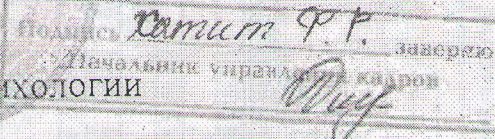 Подпись Хатит Ф. Р. заверяю
Начальник управления кадров
ихологии